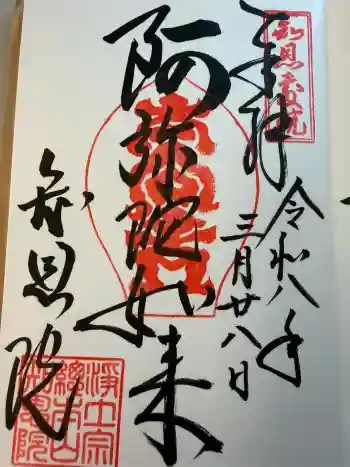 奉拝
令和八年
三月廿八日
阿弥陀如来
知恩院
浄土宗
総本山
知恩院